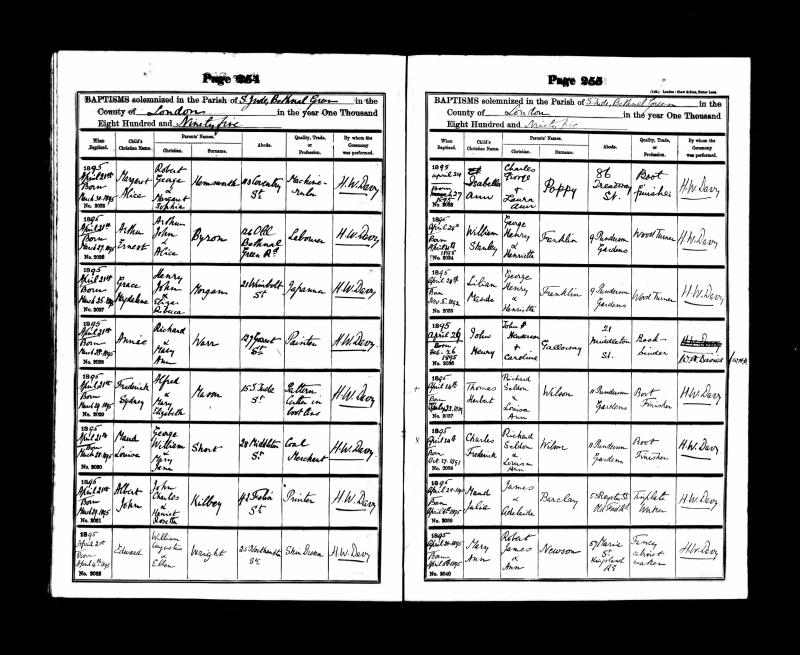 Page 254
BAPTISMS solemnized in the Parish of S. Jude, Bethnal Green in the
County of London in the year One Thousand
Eight Hundred and Ninety five
When Baptized.
Child's Christian Name.
Parents' Names.
Christian.
Surname.
Abode.
Quality, Trade, or Profession.
By whom the Ceremony was performed.
1895 April 21st Born March 30 1895
Margaret Alice
Robert George & Margaret Sophia
Hemsworth
Coventry St
Machine-ruler
H.W. Davy
1895 April 21st Born March 27 1895
Arthur Ernest
Arthur John & Alice
Byrom
Old Bethnal Green Rd
Labourer
H.W. Davy
1895 April 21st Born March 25 1895
Grace Magdalene
Henry John & Eliza Rebecca
Morgan
21 Wimbolt St
Japanner
H.W. Davy
No. 2027
1895 April 21st Born March 28 1895
Annie
Richard & Mary Ann
Warr
St
Painter
H.W. Davy
1895 April 21st Born 1895
Frederick Sydney
Alfred & Mary Elizabeth
Mason
15 S. Jude St
Pattern Cutter in boot line
H.W. Davy
No. 2029
1895 April 21st Born March 1895
Maud Louisa
George William & Mary Jane
Short
28 Middleton St
Coal Merchant
H.W. Davy
No. 2030
1895 April 21st Born March 29 1895
Albert John
John Charles & Harriet Rosetta
Kilbey
St
Printer
H.W. Davy
No. 2031
1895 April 21st Born April 4th 1895
Edward
William Augustus & Ellen
Wright
25 St
Skin Dresser
H.W. Davy
Page 255
BAPTISMS solemnized in the Parish of S. Jude, Bethnal Green in the
County of London in the year One Thousand
Eight Hundred and Ninety five
When Baptized.
Child's Christian Name.
Parents' Names.
Christian.
Surname.
Abode.
Quality, Trade, or Profession.
By whom the Ceremony was performed.
1895 April 24 Born 1895
Isabella Ann
Charles George + Laura Ann
Poppy
86 St.
Boot finisher
H.W. Davy
1895 April 28th Born 1895
William Stanley
George Henry & Henrietta
Franklin
9 Punderson Gardens
Wood Turner
H.W. Davy
No. 2034
1895 April 28th Born Nov. 5. 1892
Lilian Maude
George Henry & Henrietta
Franklin
9 Punderson Gardens
Wood Turner
H.W. Davy
1895 April 26 Born Feb. 26 1895
John Henry
John Henderson + Caroline
Galloway
21 Middleton St.
Book-binder
H.W. Davy
+
1895 April 28th Born
Thomas Herbert
Richard & Louisa Ann
Wilson
11 Punderson Gardens
Boot Finisher
H.W. Davy
No. 2037
x
1895 April 28th Born Oct. 27. 1891
Charles Frederick
Richard & Louisa Ann
Wilson
11 Punderson Gardens
Boot Finisher
H.W. Davy
No. 2038
1895 April 28th Born 1895
Maud Julia
James & Adelaide
Barclay
Old Ford Rd.
Tinplate Worker
H.W. Davy
No. 2039
1895 April 28 1895 Born 1895
Mary Ann
Robert James & Ann
Newson
57 Maria St Kingsland Rd
Fancy cabinet maker
H.W. Davy
No. 2040